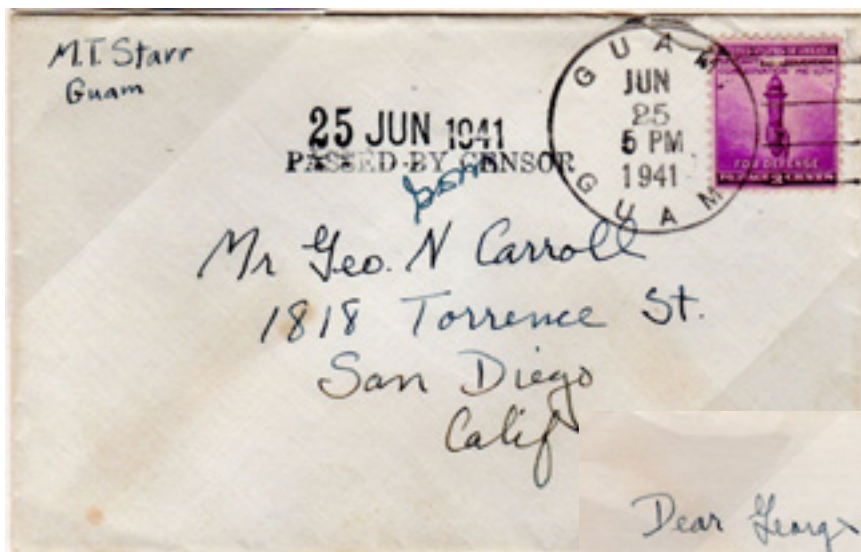 M.T. Starr
Guam
25 JUN 1941
PASSED BY CENSOR
GUAM
JUN
25
5 PM
1941
GUAM
FOR DEFENSE
Mr Geo. N Carroll
1818 Torrence St.
San Diego
Calif
Dear George